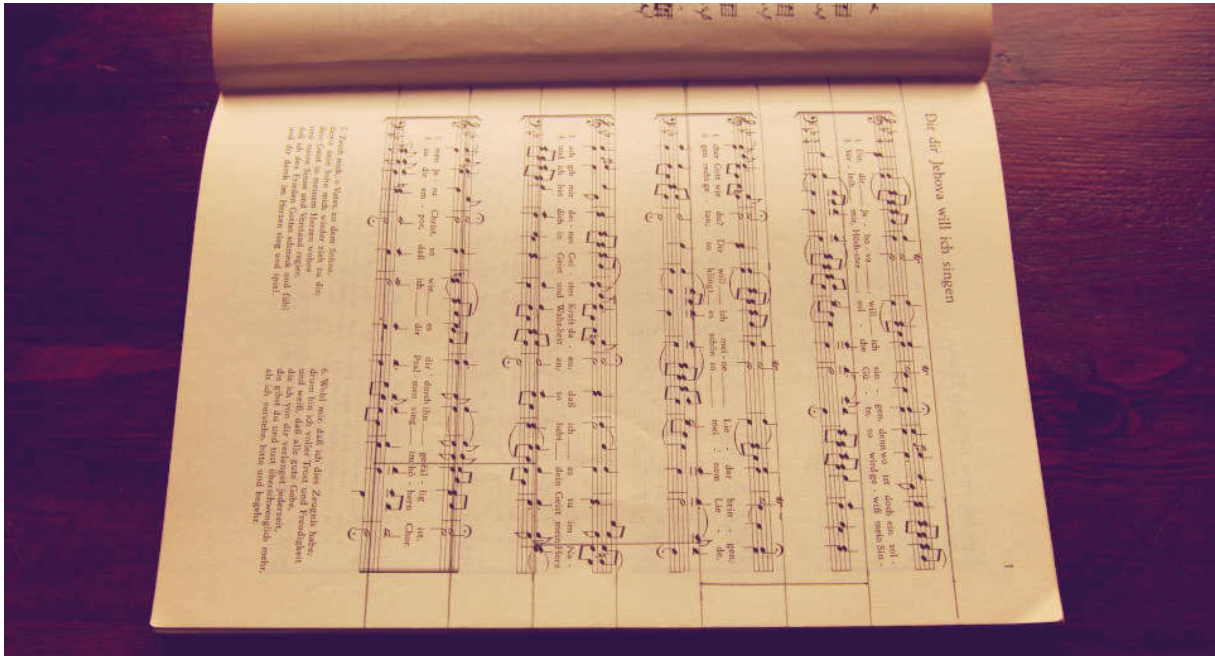 1
Dir dir Jehova will ich singen
1. Dir, dir Je - ho - va will ich sin - gen, denn wo ist doch ein sol -
Ver - leih mir, Höch-ster, sol - che Gü - te, so wird ge - wiß mein Sin -
1. cher Gott wie du? Dir will ich mei - ne Lie - der brin - gen,
gen recht ge - tan, so klingt es schön in mei - nem Lie - de,
1. ach gib mir dei - nes Gei - stes Kraft da - zu, daß ich es tu im Na -
und ich bet dich in Geist und Wahr - heit an; so hebt dein Geist mein Herz
1. men Je - su Christ, so wie es dir durch ihn gefäl - lig ist.
zu dir em - por, daß ich dir Psal - men sing im hö - hern Chor.
Zeuch mich, o Vater, zu dem Sohne,
damit dein Sohn mich wieder zieh zu dir;
dein Geist in meinem Herzen wohne
und meine Sinne und Verstand regier,
daß ich den Frieden Gottes schmeck und fühl
und dir darob im Herzen sing und spiel.
6. Wohl mir, daß ich dies Zeugnis habe;
drum bin ich voller Trost und Freudigkeit
und weiß, daß alle gute Gabe,
die ich von dir verlanget jederzeit,
die gibst du und tust überschwenglich mehr,
als ich verstehe, bitte und begehr.